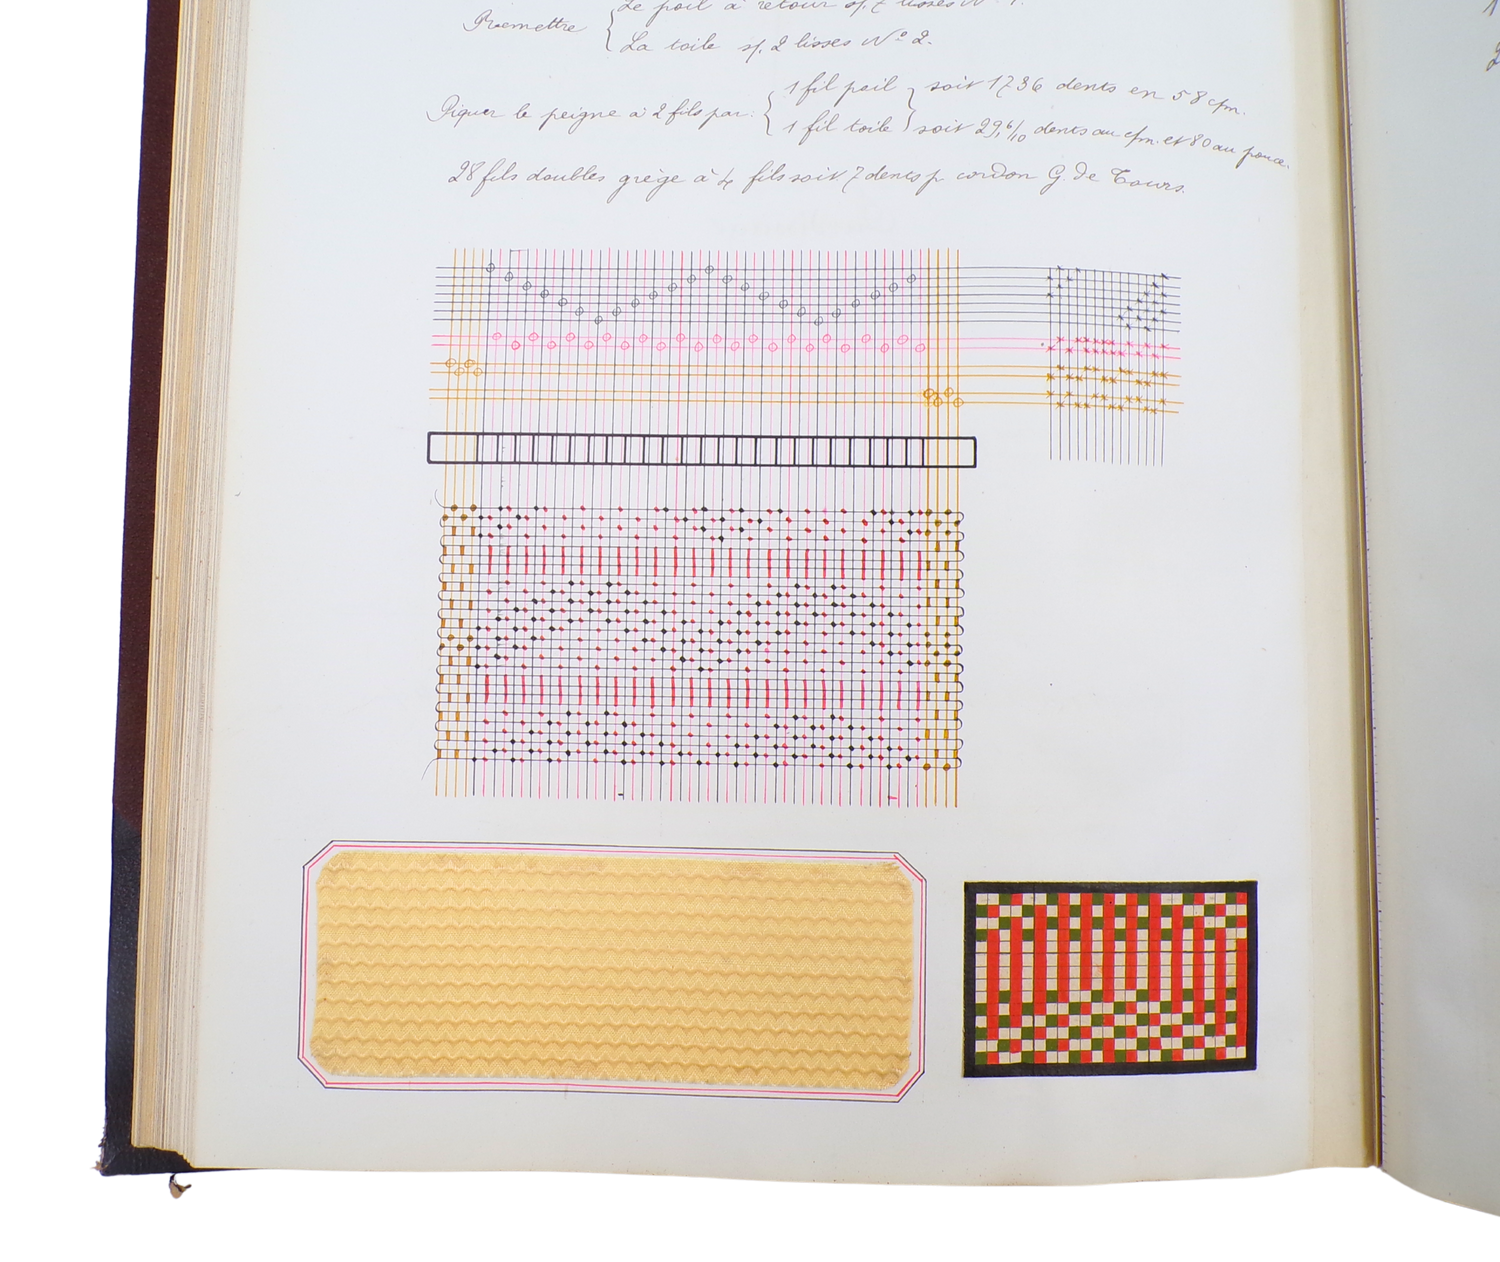 Le poil à retour s/. 7 lisses Nº 1.
Remettre
La toile s/. 2 lisses Nº 2.
1 fil poil soit 1736 dents en 58 c/m.
Piquer le peigne à 2 fils par:
1 fil toile soit 29,6/10 dents au c/m. et 80 au pouce.
28 fils doubles grège à 4 fils soit 7 dents p. cordon G. de Tours.